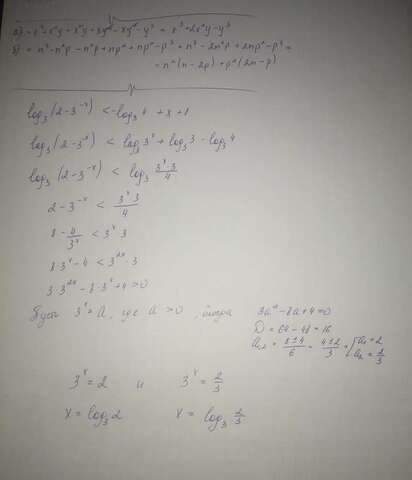 а) = x³ - x²y - x²y + xy² - xy² - y³ = x³ + 2x²y - y³
б) = n³ - n²p - n²p + np² + np² - p³ + n³ - 2n²p + 2np² - p³ =
= n²(n - 2p) + p²(2n - p)
log₃(2 - 3⁻ˣ) < -log₃4 + x + 1
log₃(2 - 3⁻ˣ) < log₃3ˣ + log₃3 - log₃4
log₃(2 - 3⁻ˣ) < log₃ (3ˣ·3)/4
2 - 3⁻ˣ < (3ˣ·3)/4
8 - 4/3ˣ < 3ˣ·3
8·3ˣ - 4 < 3²ˣ·3
3·3²ˣ - 8·3ˣ + 4 > 0
Пусть 3ˣ = a, где a > 0, тогда
3a² - 8a + 4 = 0
D = 64 - 48 = 16
a₁,₂ = (8±4)/6 = (4±2)/3 = [a₁ = 2
a₂ = 2/3
3ˣ = 2 и 3ˣ = 2/3
x = log₃2 x = log₃ 2/3